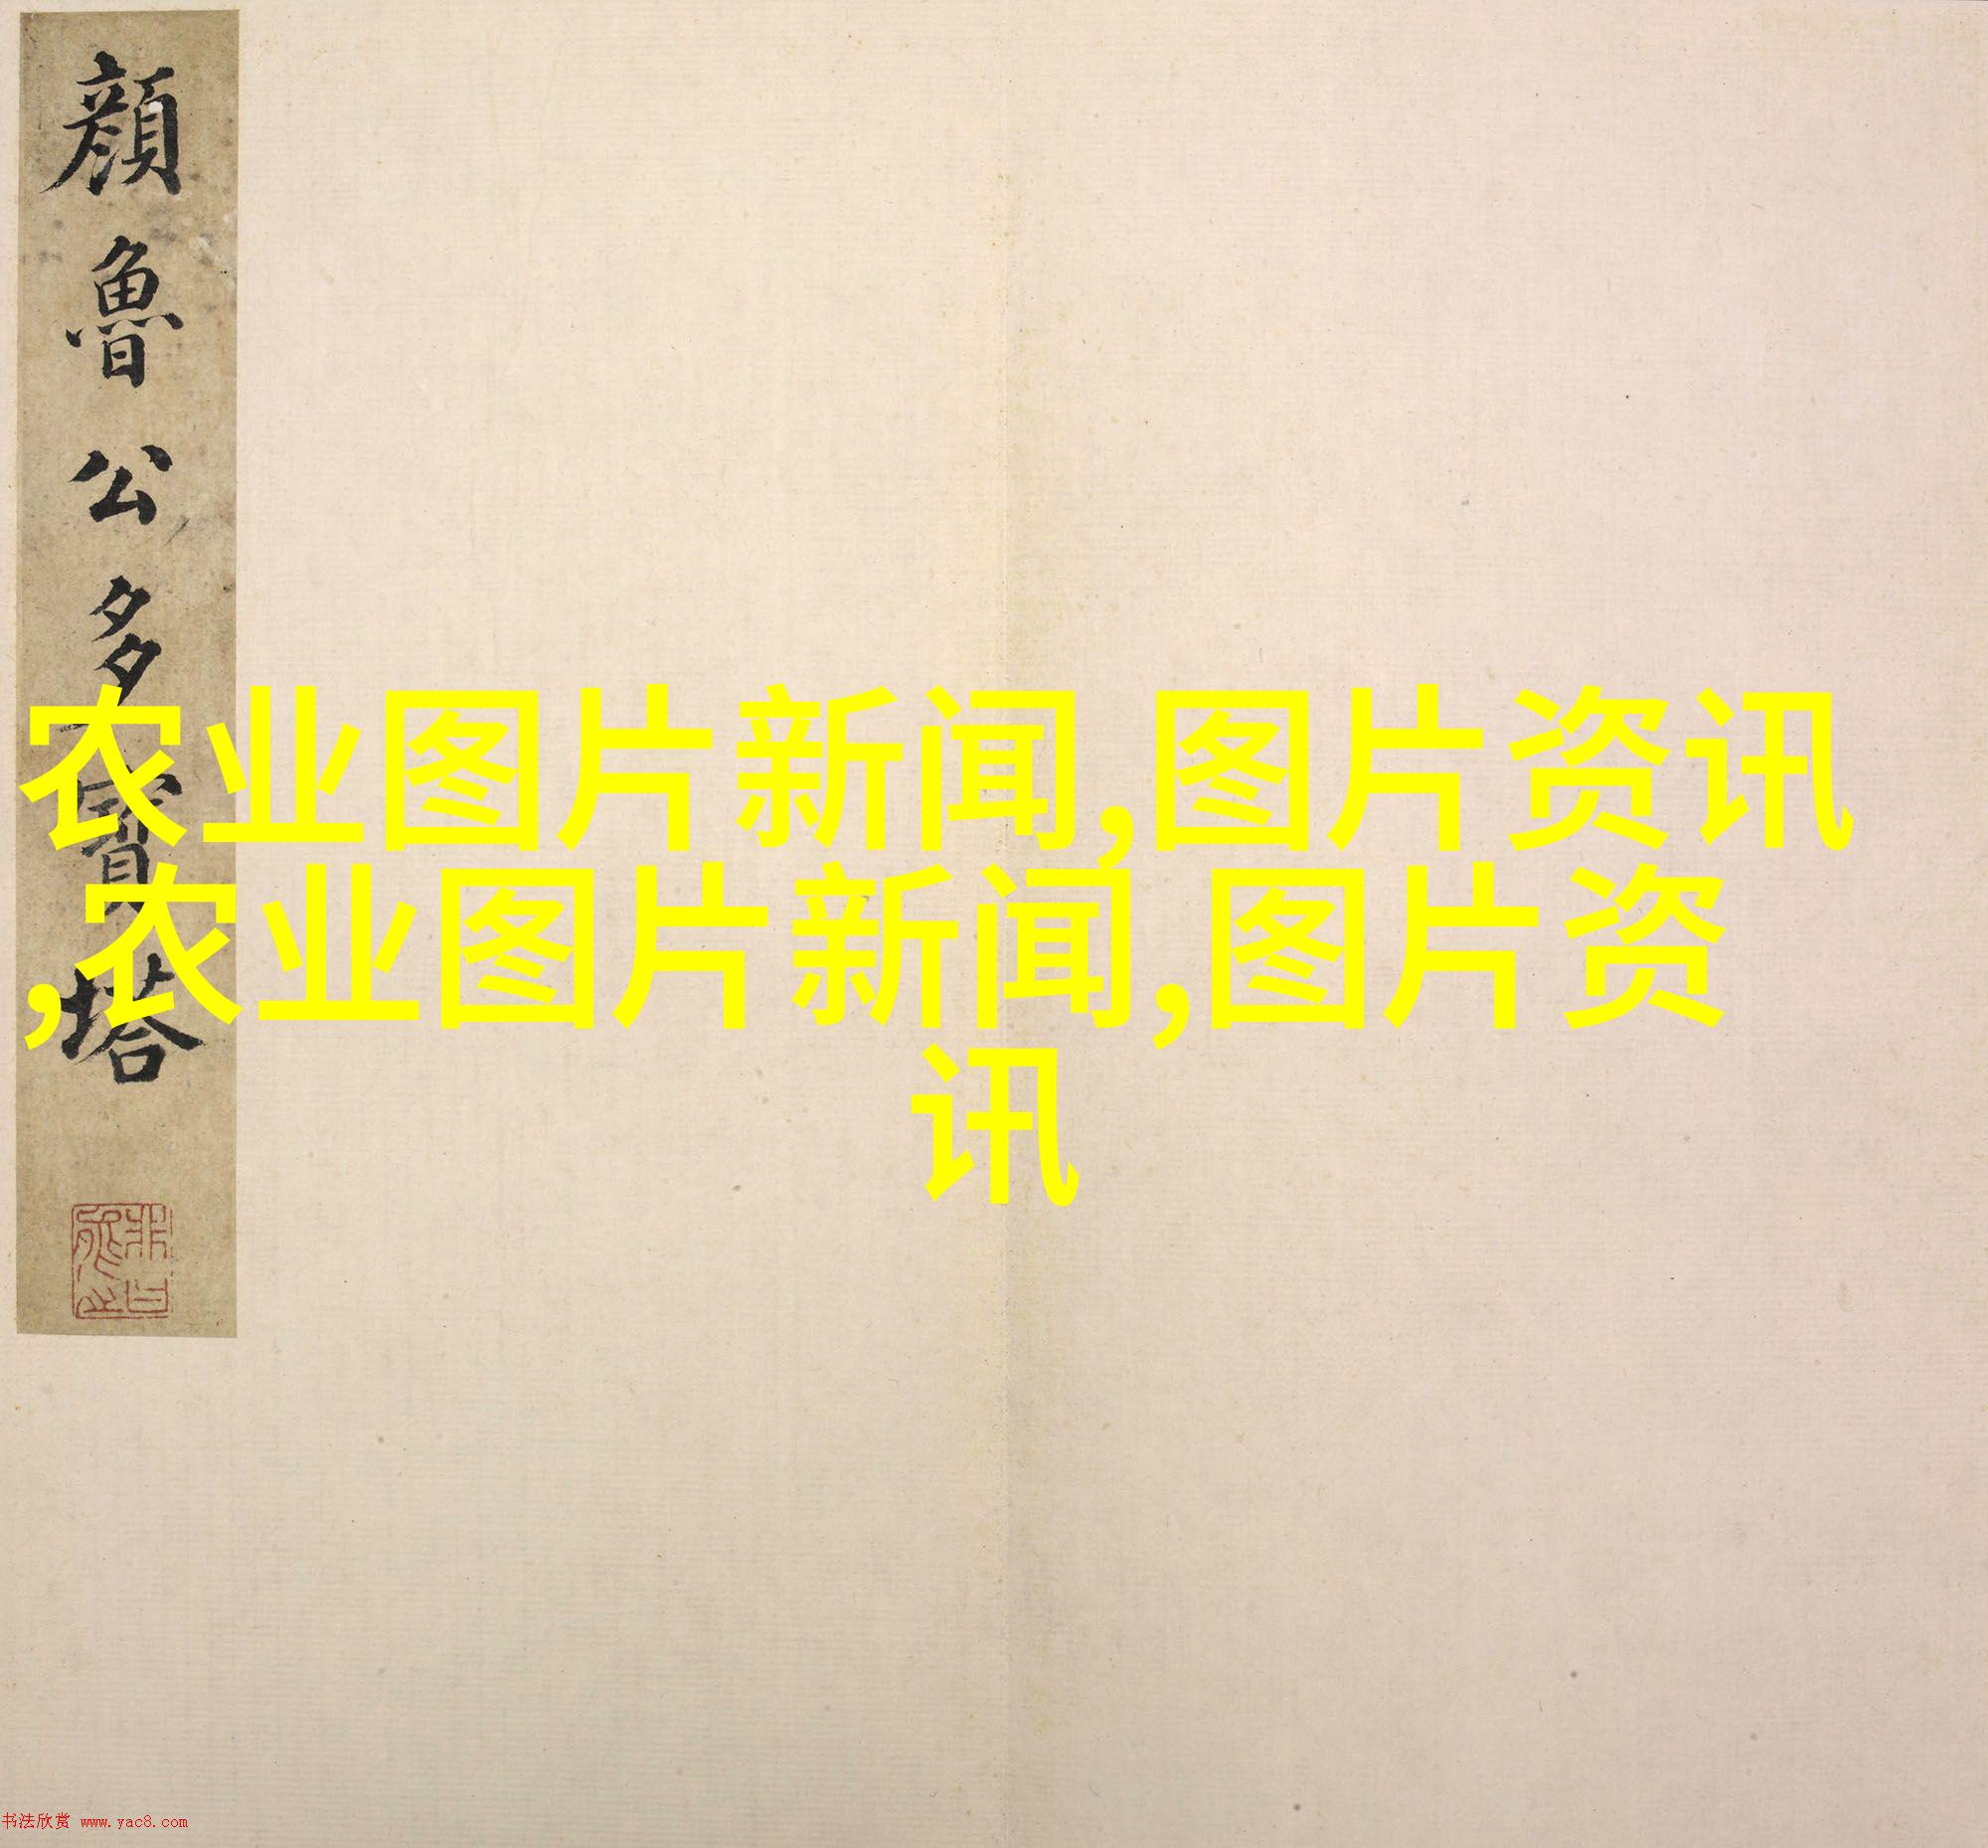 顔魯公多寶塔
农业图片新闻,图片资讯
,农业图片新闻,图片资
讯
书法欣赏 www.yac8.com